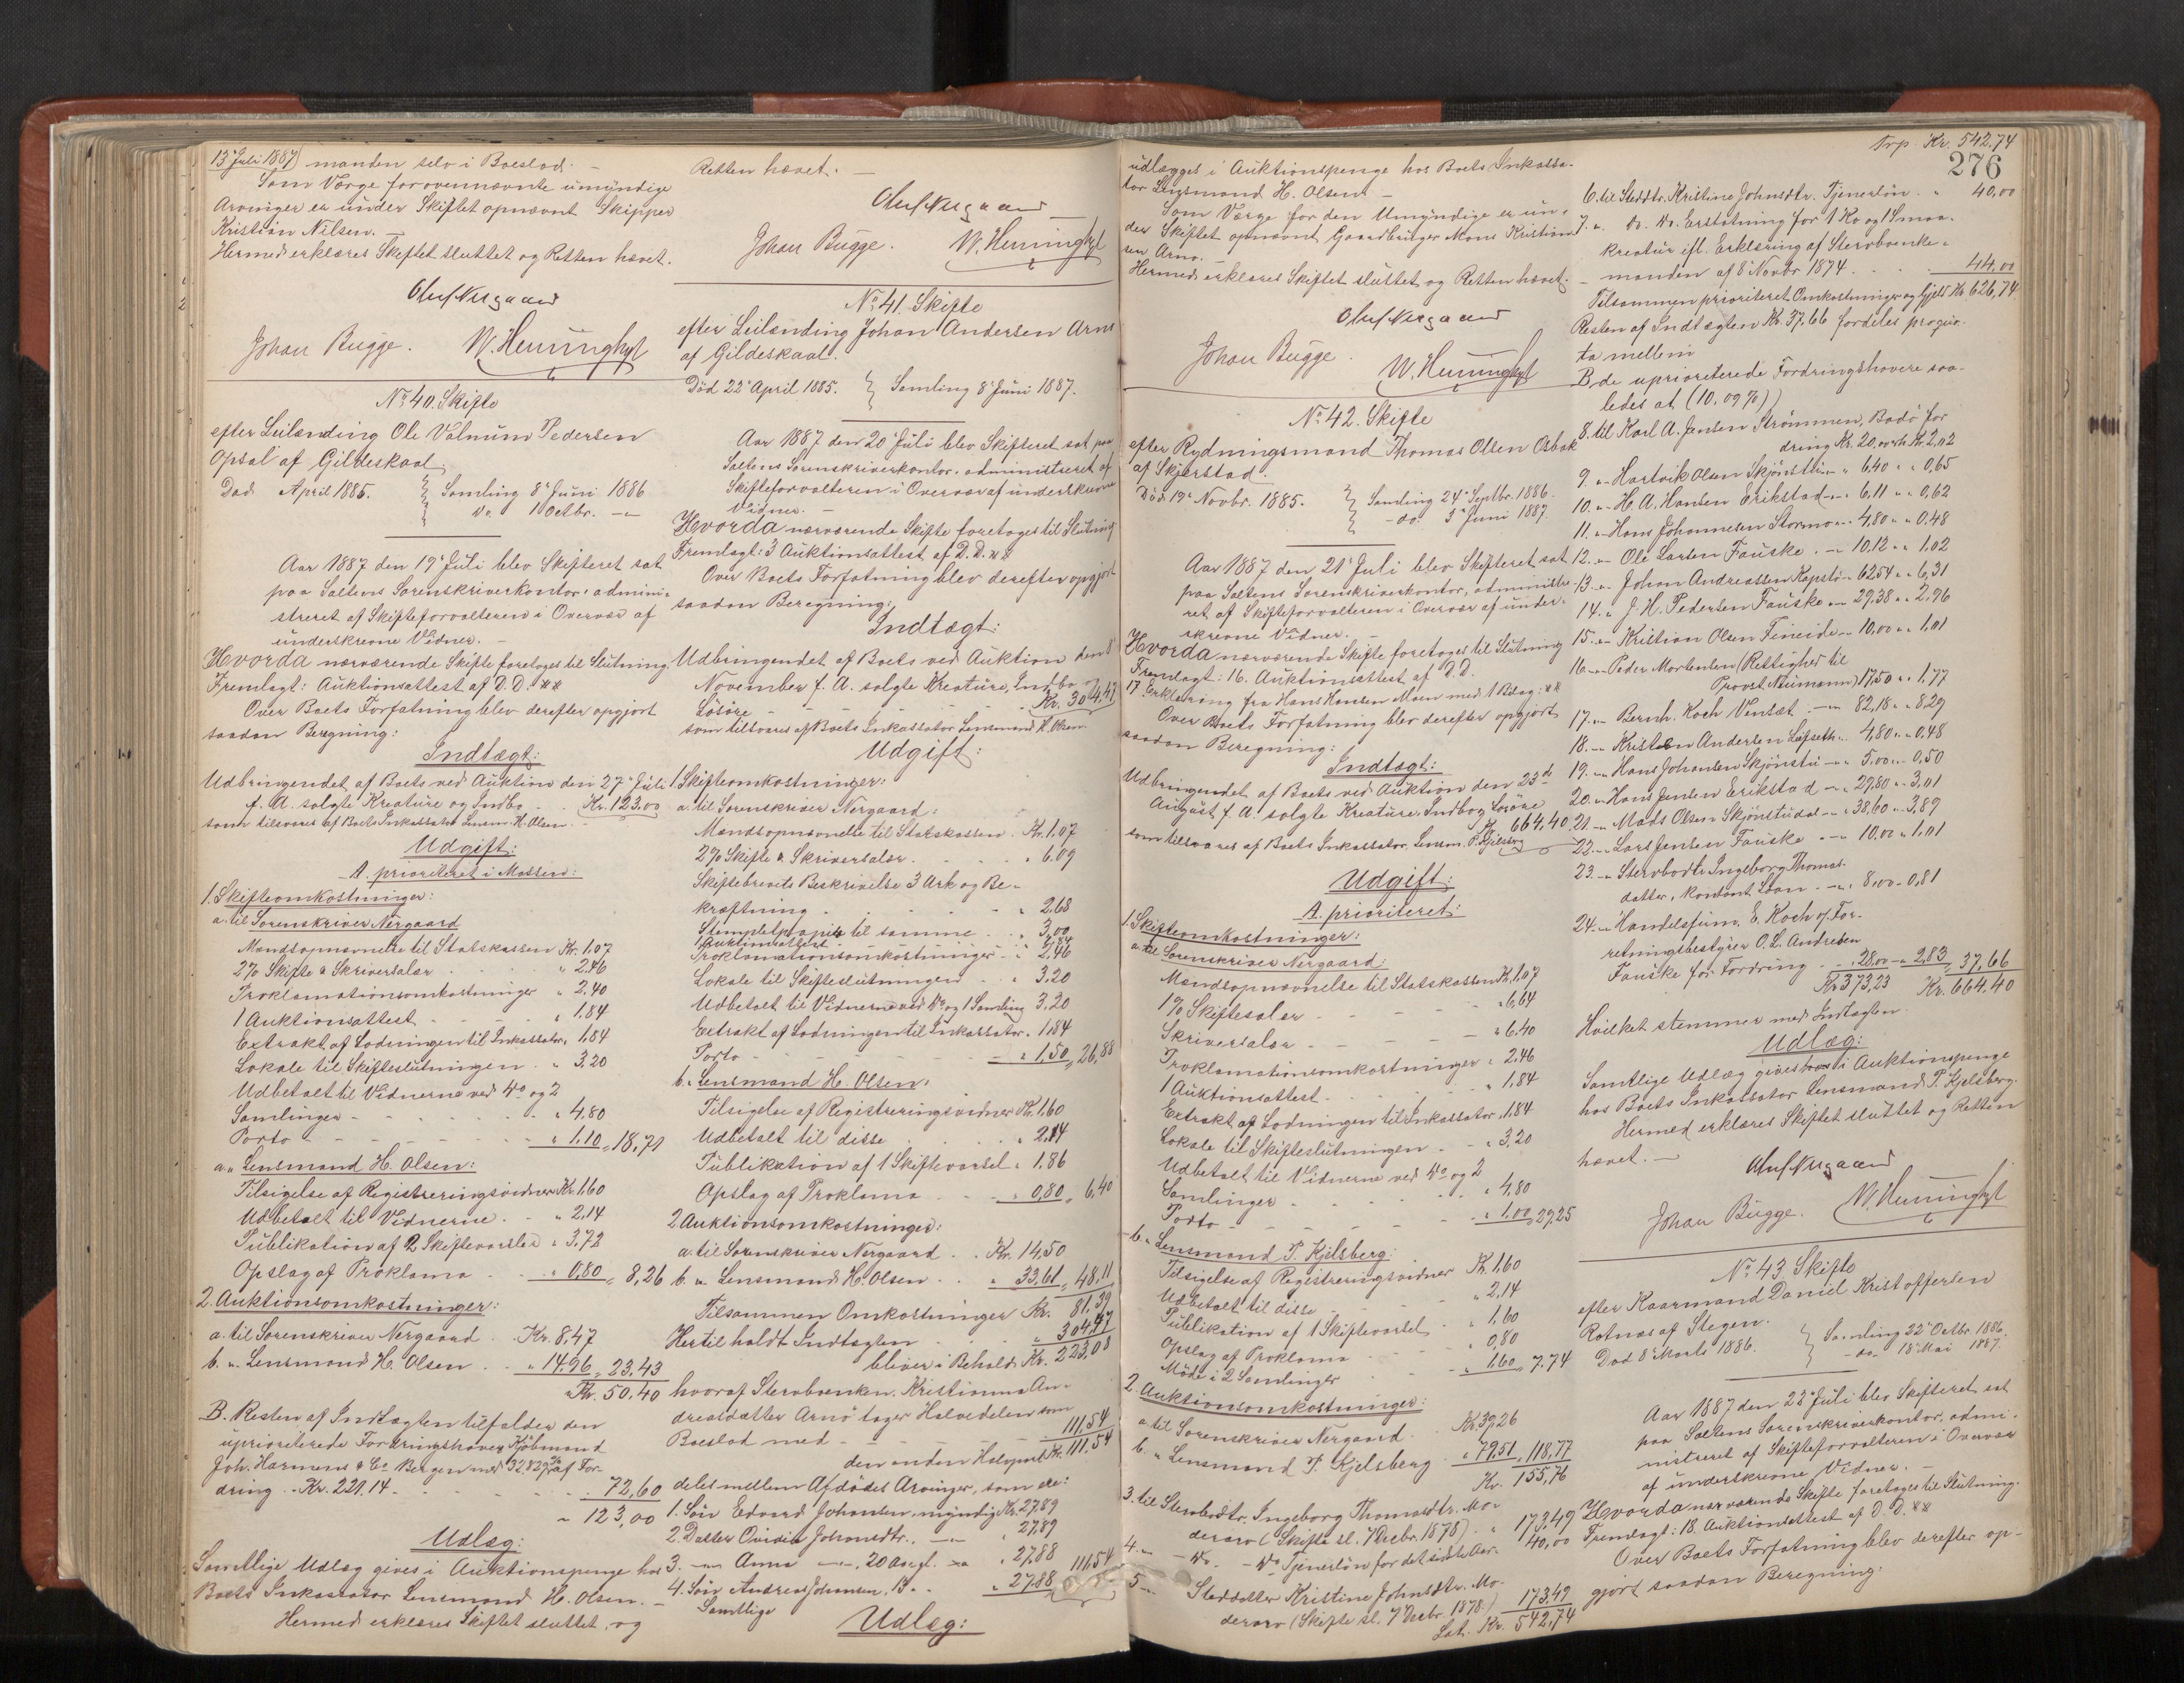 13' Juli 1887) manden selv i Boeslod. -
Som Værge for ovennævnte umyndige
Arvinger er under Skiftet opnævnt Skipper
Kristian Nilsen. -
Hermed erklæres Skiftet sluttet og Retten hævet.
Oluf Nergaard
Johan Bugge. W. Henninghyt
No 40. Skifte
efter Leilænding Ole Valnum Pedersen
Opsal af Gildeskaal
Død April 1885. Samling 8' Juni 1886
do. 1 Octbr. -"-
Aar 1887 den 19' Juli blev Skifteret sat
paa Saltens Sorenskriverkontor, admini-
streret af Skifteforvalteren i Overvær af
underskrevne Vidner. -
Hvorda nærværende Skifte foretoges til Slutning.
Fremlagt: Auktionsattest af D. D. **
Over Boets Forfatning blev derefter opgjort
saadan Beregning:
Indtægt:
Udbringendet af Boets ved Auktion den 27' Juli
f. A. solgte Kreature og Indbo - . Kr. 123.00
som tilsvares af Boets Inkassator Lensm. H. Olsen.
Udgift:
A. prioriteret i Massen:
1. Skifteomkostninger:
a. til Sorenskriver Nergaard
Mandsopnævnelse til Statskassen Kr. 1,07
2% Skifte & Skriversalær . . " 2.46
Proklamationsomkostninger " 2,40
1 Auktionsattest - - - " 1.84
Extrakt af Lodningen til Inkassator " 1,84
Lokale til Skifteslutningen . " 3,20
Udbetalt til Vidnerne ved do og 2
Samlinger - - - " 4.80
Porto - - - - " 1.10 " 18,71
a. " Lensmand H. Olsen:
Tilsigelse af Registreringsvidner Kr. 1,60
Udbetalt til Vidnerne. - " 2.14
Publikation af 2 Skiftevarsler " 3,72
Opslag af Proklama . - " 0,80 " 8,26
2. Auktionsomkostninger:
a. til Sorenskriver Nergaard . Kr. 8,47
b. " Lensmand H. Olsen . . " 14,96 " 23,43
Kr. 50,40
B. Resten af Indtægten tilfalder den
uprioriterede Fordringshaver Kjøbmand
Joh. Harmens & Co Bergen med 32,829% af For-
dring - Kr. 221.14 - - - 72,60
" 123,00
Udlæg:
Samtlige Udlæg gives i Auktionspenge hos
Boets Inkassator Lensmand H. Olsen. -
Hermed erklæres Skiftet sluttet, og
Retten hævet. -
Oluf Nergaard
Johan Bugge. W. Henninghyt
No 41. Skifte
efter Leilænding Johan Andersen Arnø
af Gildeskaal.
Død 22' April 1885. Samling 8' Juni 1887.
Aar 1887 den 20' Juli blev Skifteret sat paa
Saltens Sorenskriverkontor, administreret af
Skifteforvalteren i Overvær af underskrevne
Vidner. -
Hvorda nærværende Skifte foretoges til Slutning
Fremlagt: 3 Auktionsattest af D. D. **
Over Boets Forfatning blev derefter opgjort
saadan Beregning:
Indtægt:
Udbringendet af Boets ved Auktion den 8'
November f. A. solgte Kreature, Indbo og
Løsøre - - - - Kr. 304.47
som tilsvares af Boets Inkassator Lensmand H. Olsen.
Udgift:
1. Skifteomkostninger:
a. til Sorenskriver Nergaard:
Mandsopnævnelse til Statskassen . Kr. 1,07
2% Skifte & Skriversalær. - - " 6.09
Skiftebrevets Beskrivelse 3 Ark og Be-
kræftning - - - " 2,68
Stempletpapir til samme . . " 3,00
1 Auktionsattest . . " 1,84
Proklamationsomkostninger - " 2,46
Lokale til Skifteslutningen - " 3,20
Udbetalt til Vidnerne ved do og 1 Samling 3,20
Extrakt af Lodningen til Inkassator. 1,84
Porto - - - " 1,50 " 26,88
b. " Lensmand H. Olsen:
Tilsigelse af Registreringsvidner Kr. 1,60
Udbetalt til disse . . " 2,14
Publikation af 1 Skiftevarsel " 1,86
Opslag af Proklama - - " 0,80 " 6,40
2 Auktionsomkostninger:
a. til Sorenskriver Nergaard . . Kr. 14,50
b. " Lensmand H. Olsen . . " 33,61 " 48,11
Tilsammen Omkostninger Kr. 81,39
Hertil holdt Indtægten - " 304,47
bliver i Behold Kr. 223,08
hvoraf Stervboenken, Kristianna An-
dreasdatter Arnø tager Halvedelen som
Boeslod med - - - 111,54
den anden Halvpart Kr. 111,54
deles mellem Afdødes Arvinger, som ere:
1. Søn Edvard Johansen, myndig Kr. 27,89
2. Datter Ovidia Johansdtr. -"- " 27,89
3. -"- Anna -"-, 20 Aar gl. " 27,88
4. Søn Andreas Johansen, 13 " " 27,88 111,54
Samtlige
Udlæg:
udlægges i Auktionspenge hos Boets Inkassa-
tor Lensmand H. Olsen. -
Som Værge for den Umyndige er un-
der Skiftet opnævnt Gaardbruger Mons Kristian-
sen Arnø. -
Hermed erklæres Skiftet sluttet og Retten hævet. -
Oluf Nergaard
Johan Bugge. W. Henninghyt
No 42. Skifte
efter Rydningsmand Thomas Olsen Osbak
af Skjerstad.
Død 19' Novbr. 1885. Samling 24' Septbr. 1886.
- do. 3' Juni 1887.
Aar 1887 den 21' Juli blev Skifteret sat
paa Saltens Sorenskriverkontor, administre-
ret af Skifteforvalteren i Overvær af under-
skrevne Vidner. -
Hvorda nærværende Skifte foretoges til Slutning
Fremlagt: 16. Auktionsattest af D. D.
17 Erklæring fra Hans Hansen Moen med 1 Bilag: **
Over Boets Forfatning blev derefter opgjort
saadan Beregning:
Indtægt:
Udbringendet af Boets ved Auktion den 23de
August f. A. solgte Kreature Indbo og Løsøre
Kr. 664,40
som tilsvares af Boets Inkassator Lensm. P. Kjelsberg
Udgift:
A. prioriteret:
1. Skifteomkostninger:
a. til Sorenskriver Nergaard:
Mandsopnævnelse til Statskassen Kr. 1,07
1% Skiftesalær - - - " 6,64
Skriversalær - - - - " 6.40
Proklamationsomkostninger " 2.46
1 Auktionsattest - - - " 1,84
Extrakt af Lodningen til Inkassator " 1,84
Lokale til Skifteslutningen - " 3,20
Udbetalt til Vidnerne ved do og 2
Samlinger - - - " 4,80
Porto - - - - " 1,00 " 29,25
b. " Lensmand P. Kjelsberg:
Tilsigelse af Registreringsvidner Kr. 1,60
Udbetalt til disse - - " 2,14
Publikation af 1 Skiftevarsel - " 1,60
Opslag af Proklama - - " 0,80
Møde i 2 Samlinger - " 1,60 " 7,74
2. Auktionsomkostninger:
a. til Sorenskriver Nergaard . Kr. 39,26
b. " Lensmand P. Kjelsberg " 79,51 " 118,77
Kr. 155,76
3. til Stervbodtr. Ingeborg Thomasdtr. Mo-
derarv (Skifte sl. 7 Decbr. 1878) . " 173,49
4. " - do. - do Tjenerløn for det sidste Aar. 40,00
5 " Steddatter Kristine Johnsdtr. Mo-
derarv (Skifte sl. 7 Decbr. 1878.) 173,49
Lat. Kr. 542,74
Trp. Kr. 542,74
276
6. til Steddtr. Kristine Johnsdtr. Tjenerløn . " 40,00
7. " do. do. Erstatning for 1 Ko og 1 Smaa-
kreatur ifl. Erklæring af Stervboenke-
manden af 8' Novbr 1874 . . . 44,00
Tilsammen prioriteret Omkostninger og Gjeld Kr 626,74
Resten af Indtægten Kr. 37.66 fordeles proqvo-
ta mellem
B, de uprioriterede Fordringshavere saa-
ledes at (10.09%)
8. til Karl A. Jensen Strømmen, Bodø for
dring Kr. 20,00 erh. Kr. 2,02
9. " Hartvik Olsen Skjønstu " " 6,40 " " 0,65
10. " H. A. Hansen Erikstad " " 6,11 " " 0,62
11. " Hans Johannesen Stormo " " 4,80 " " 0,48
12. " Ole Larsen Fauske . " 10,12 " " 1,02
13. " Johan Andreassen Kapstø " 62,54 " " 6,31
14. " J. H. Pedersen Fauske " 29,38 " " 2.96
15. " Kristian Olsen Fineide " 10,00 " " 1,01
16. " Peder Mortensen (Rettighed til
Provst Neumann) 17,50 " " 1,77
17. " Bernh. Koch Venset . " 82,18 " " 8,29
18. " Kristen Andersen Løfseth " 4,80 " " 0,48
19. " Hans Johansen Skjønstu " " 5,00 " " 0,50
20. " Hans Jensen Erikstad " " 29,80 " " 3,01
21. " Mads Olsen Skjønstudal " " 38,60 " " 3,89
22. " Lars Jensen Fauske . " 10,00 " 1,01
23. " Stervbodtr Ingeborg Thomas-
datter, kontant Laan . " " 8,00 " 0,81
24. " Handelsfirm. E. Koch v/ For-
retningsbestyrer O. L. Andresen
Fauske for Fordring - " 28,00 " " 2,83 " 37,66
Kr 373,23 Kr. 664.40
Hvilket stemmer med Indtægten.
Udlæg:
Samtlige Udlæg gives i Auktionspenge
hos Boets Inkassator Lensmand P. Kjelsberg.
Hermed erklæres Skiftet sluttet og Retten
hævet. -
Oluf Nergaard
Johan Bugge. W. Henninghyt
No 43 Skifte
efter Kaarmand Daniel Kristoffersen
Rotnæs af Stegen.
Død 8' Marts 1886. Samling 22' Octbr 1886.
- do. 18' Mai 1887.
Aar 1887 den 22' Juli blev Skifteret sat
paa Saltens Sorenskriverkontor, admi-
nistreret af Skifteforvalteren i Overvær
af underskrevne Vidner. -
Hvorda nærværende Skifte foretoges til Slutning.
Fremlagt: 18. Auktionsattest af D. D. **
Over Boets Forfatning blev derefter op-
gjort saadan Beregning: